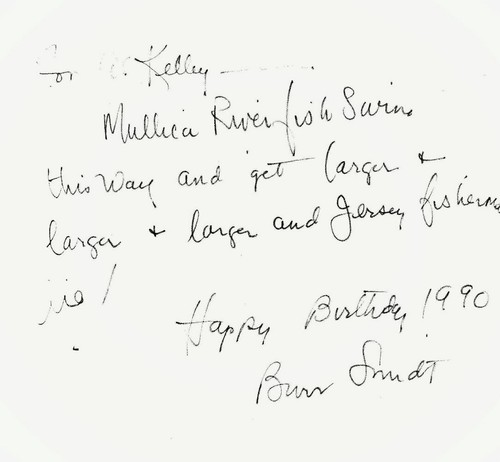 For W. Kelley
Mullica River fish Swim
this way and get larger &
larger & larger and Jersey fisherme
lie!
Happy Birthday 1990
Burr